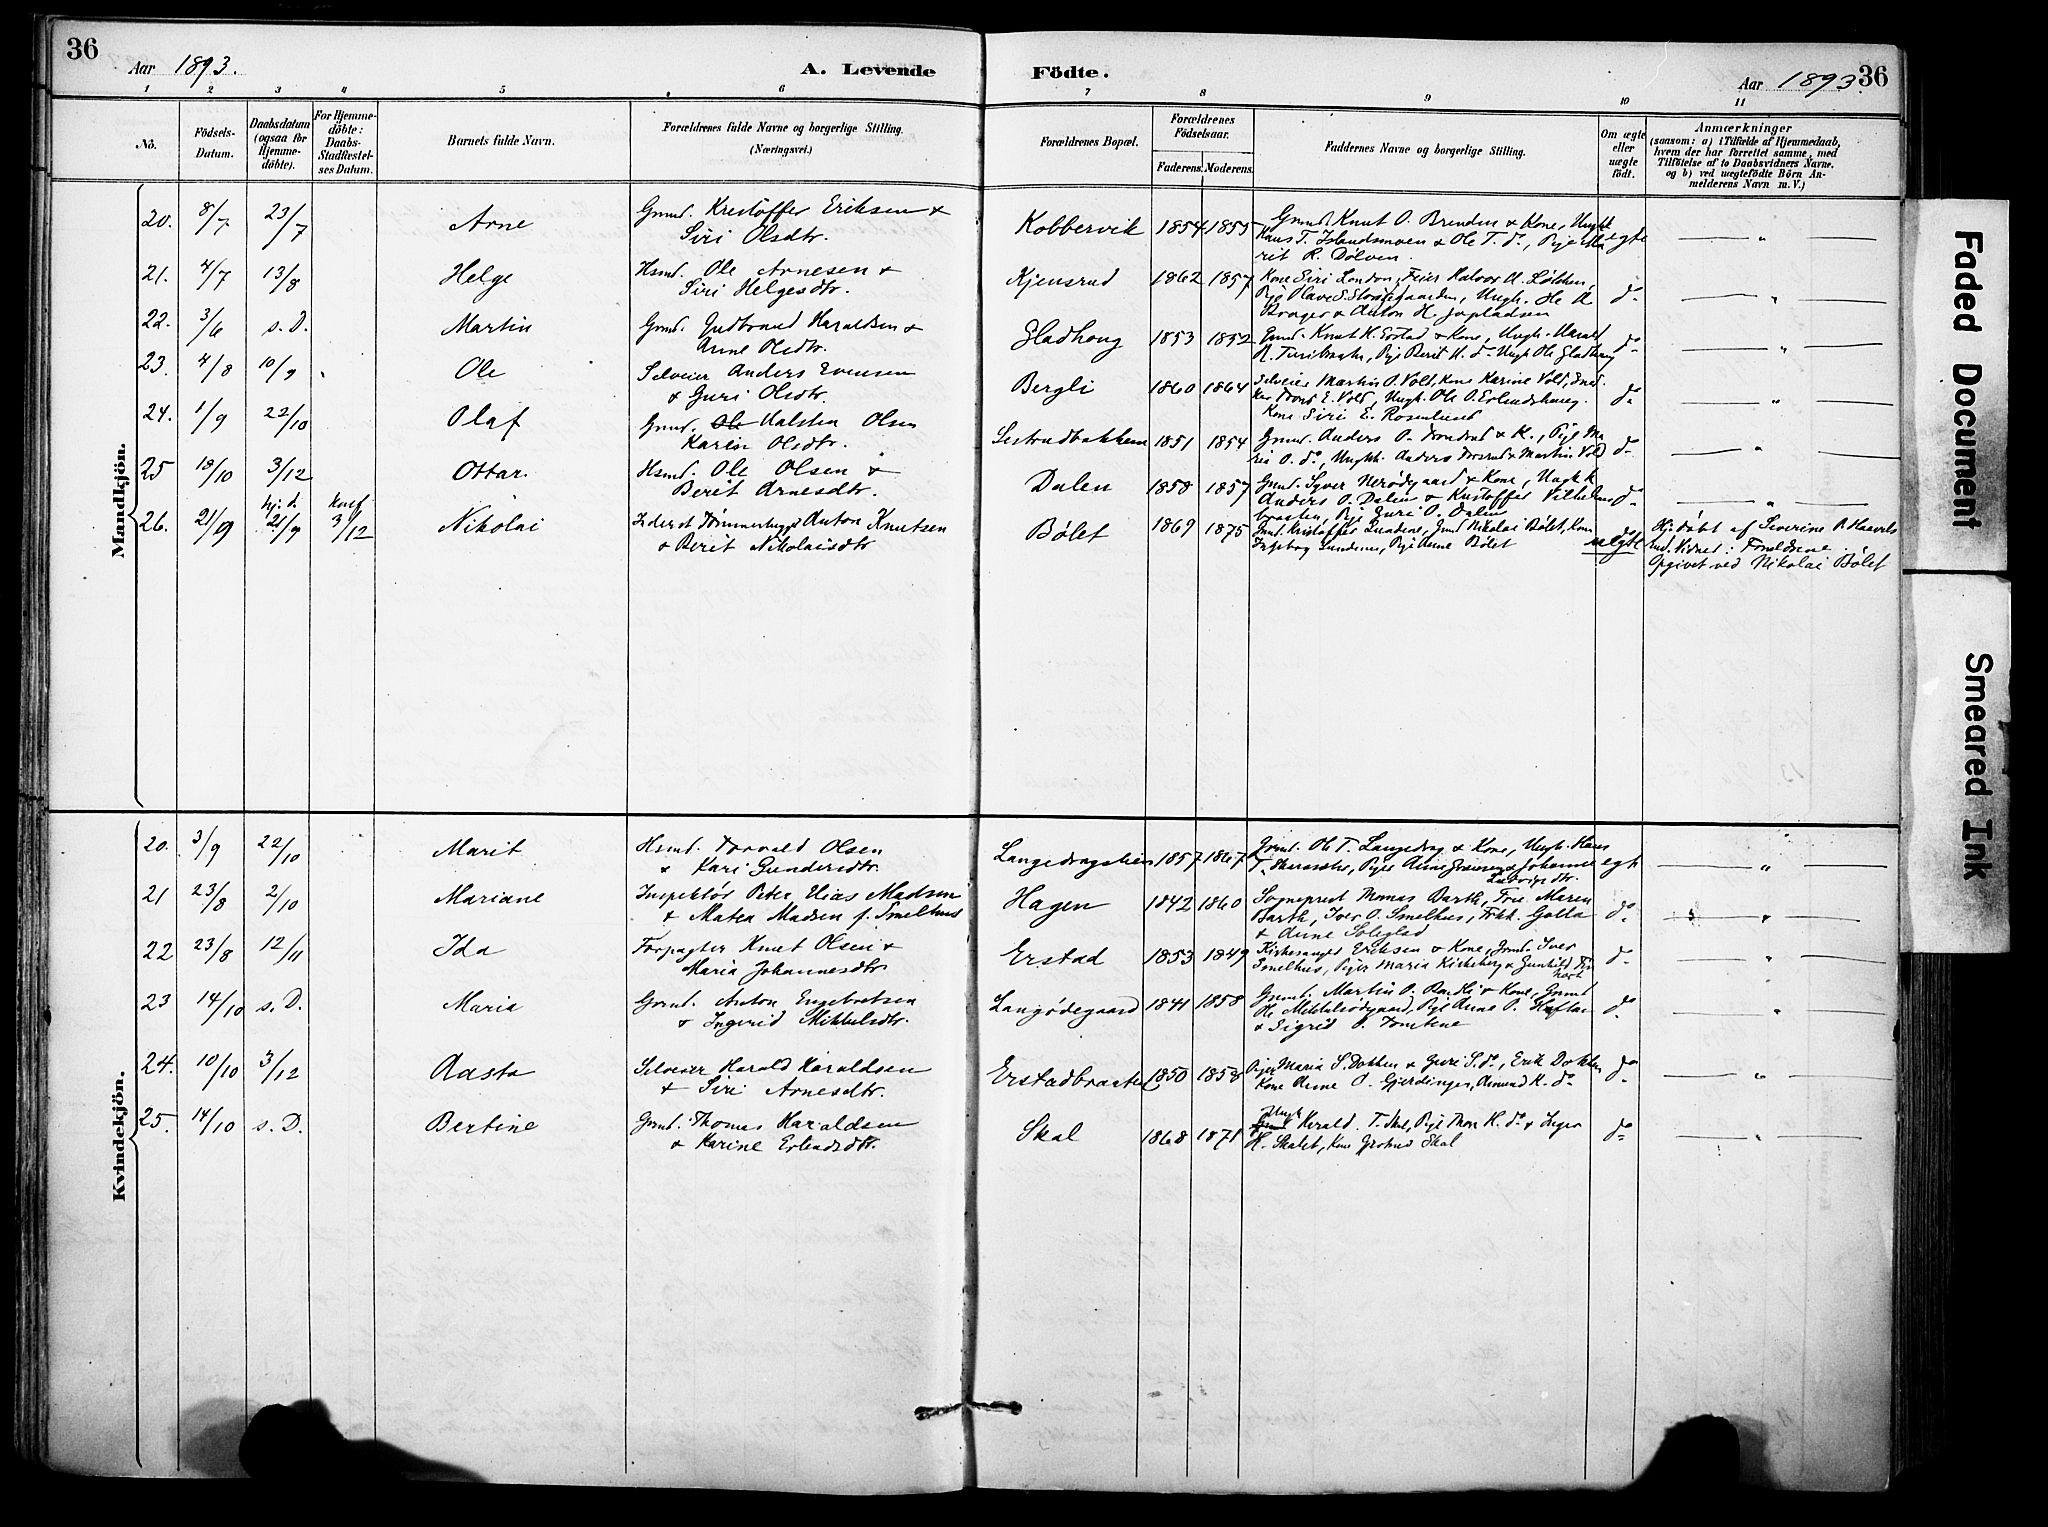 36
Aar 1893.
A. Levende Födte.
Aar 1893.
36
1 2 3 4 5 6 7 8 9 10 11
No.
Födsels-
Datum.
Daabsdatum
(ogsaa for
Hjemme-
döbte).
For Hjemme-
döbte:
Daabs-
Stadfæstel-
ses Datum.
Barnets fulde Navn.
Forældrenes fulde Navne og borgerlige Stilling.
(Næringsvei.)
Forældrenes Bopæl.
Forældrenes
Födselsaar.
Faderens. Moderens.
Faddernes Navne og borgerlige Stilling.
Om ægte
eller
uægte
födt.
Anmærkninger
(saasom: a) i Tilfælde af Hjemmedaab,
hvem der har forrettet samme, med
Tilföielse af to Daabsvidners Navne.
og b) ved uægtefödte Börn An-
melderens Navn m. V.)
Mandkjön.
20. 8/7 23/7 Arne
Grmd. Kristoffer Eriksen &
Siri Olsdtr.
Kobbervik 1854 1855
Grmd. Knut O. Brenden & Kone, Ungk
Hans T. Islandsmoen & Ole T. do, Pige
rit R. Dølven
ægte
21. 4/7 13/8 Helge
Hsmd. Ole Arnesen &
Siri Helgesdtr.
Kjensrud 1862 1857
Kone Siri London, Feier Halvor A.
Pige Olave S. Ungk. Ole A.
& Anton H.
do
22. 3/6 s. D. Martin
Grmd. Gudbrand Haraldsen &
Anne Olsdtr.
Gladhoug 1853 1852
Grmd. Knut K. Erstad & Kone, Ungk. Harald
Pige Berit H. do Ungk Ole Gladhoug
do
23. 4/8 10/9 Ole
Selveier Anders Evensen
& Guri Olsdtr.
Bergli 1860 1864
Selveier Martin O. Vold, Kone Karine Vold,
E. Vold, Ungk. Ole O. Erlandshoug.
Kone Siri E. Rosenlund
do
24. 1/9 22/10 Olaf
Grmd. Ole Halsten Olsen
Karin Olsdtr.
1851 1854
Grmd. Anders O. & K., Pige Ma
ria O. do, Ungkk. Anders & Martin Vold
do
25 18/10 3/12 Ottar.
Hsmd. Ole Olsen &
Berit Arnesdtr.
Dalen 1858 1857
Grmd. Syver Nerødegaard & Kone, Ungkk
Anders O. Dalen & Kristoffer
braaten, Pige Guri O. Dalen
do
26. 21/9 hj. d. 21/9 Konf 3/12 Nikolai
Inderst Tømmerhugger Anton Knutsen
& Berit Nikolaisdtr
Bølet 1869 1875
Grmd. Kristoffer Lundene, Grmd Nikolai Bølet, Kone
Ingebog Lundenes, Pige Anne Bølet
uægte
Hj: døbt af Severine P. Haavels
rud. Vidner: Forældrene
Opgivet ved Nikolai Bølet
Kvindekjön.
20. 3/9 22/10 Marit
Hsmd. Torvald Olsen
& Kari Gundersdtr.
Langedragsheien 1857 1867
Grmd. Ole T. Langedrag & Kone, Ungk. Hans
T. Pige Anne & Johanne
Ludvigsdtr.
egte
21 23/8 2/10 Mariane
Inspektør Peter Elias Madsen
& Matea Madsen f. Smelhus
Hagen 1842 1860
Sogneprest Thomas Barth, Frue Maren
Barth, Iver O. Smelhus, Frkk. Golla
& Anne Soleglad
do
22 23/8 12/11 Ida
Forpagter Knut Olsen &
Maria Johannesdtr
Erstad 1853 1849
Kirkesanger Eriksen & Kone, Grmd. Iver
Smelhus, Piger Maria Kirkeberg & Gunhild
do
23 14/10 s. D. Maria
Grmd. Anton Engebretsen
& Ingerid Mikkelsdtr.
Langødegaard 1841 1858
Grmd. Martin O. & Kone, Grmd
Ole Mikkelsødegaard, Pige Anne P. Haftor
& Sigrid P. Tomtene
do
24. 10/10 3/12 Aasta
Selveier Harald Haraldsen
& Siri Arnesdtr.
Erstadbraaten 1850 1858
Piger Maria S. Dokken & Guri S. do, Erik Dokken
Kone Anne O. Gjerdingen, Amund K. do
do
25. 14/10 s. D. Bertine
Grmd. Thomas Haraldsen
& Karine Erlandsdtr.
Skal 1868 1871
Ungk
Herald T. Skal, Pige Thon H. do & Inger
H. Skalet, Kone Skal
do
Faded Document
Smeared Ink